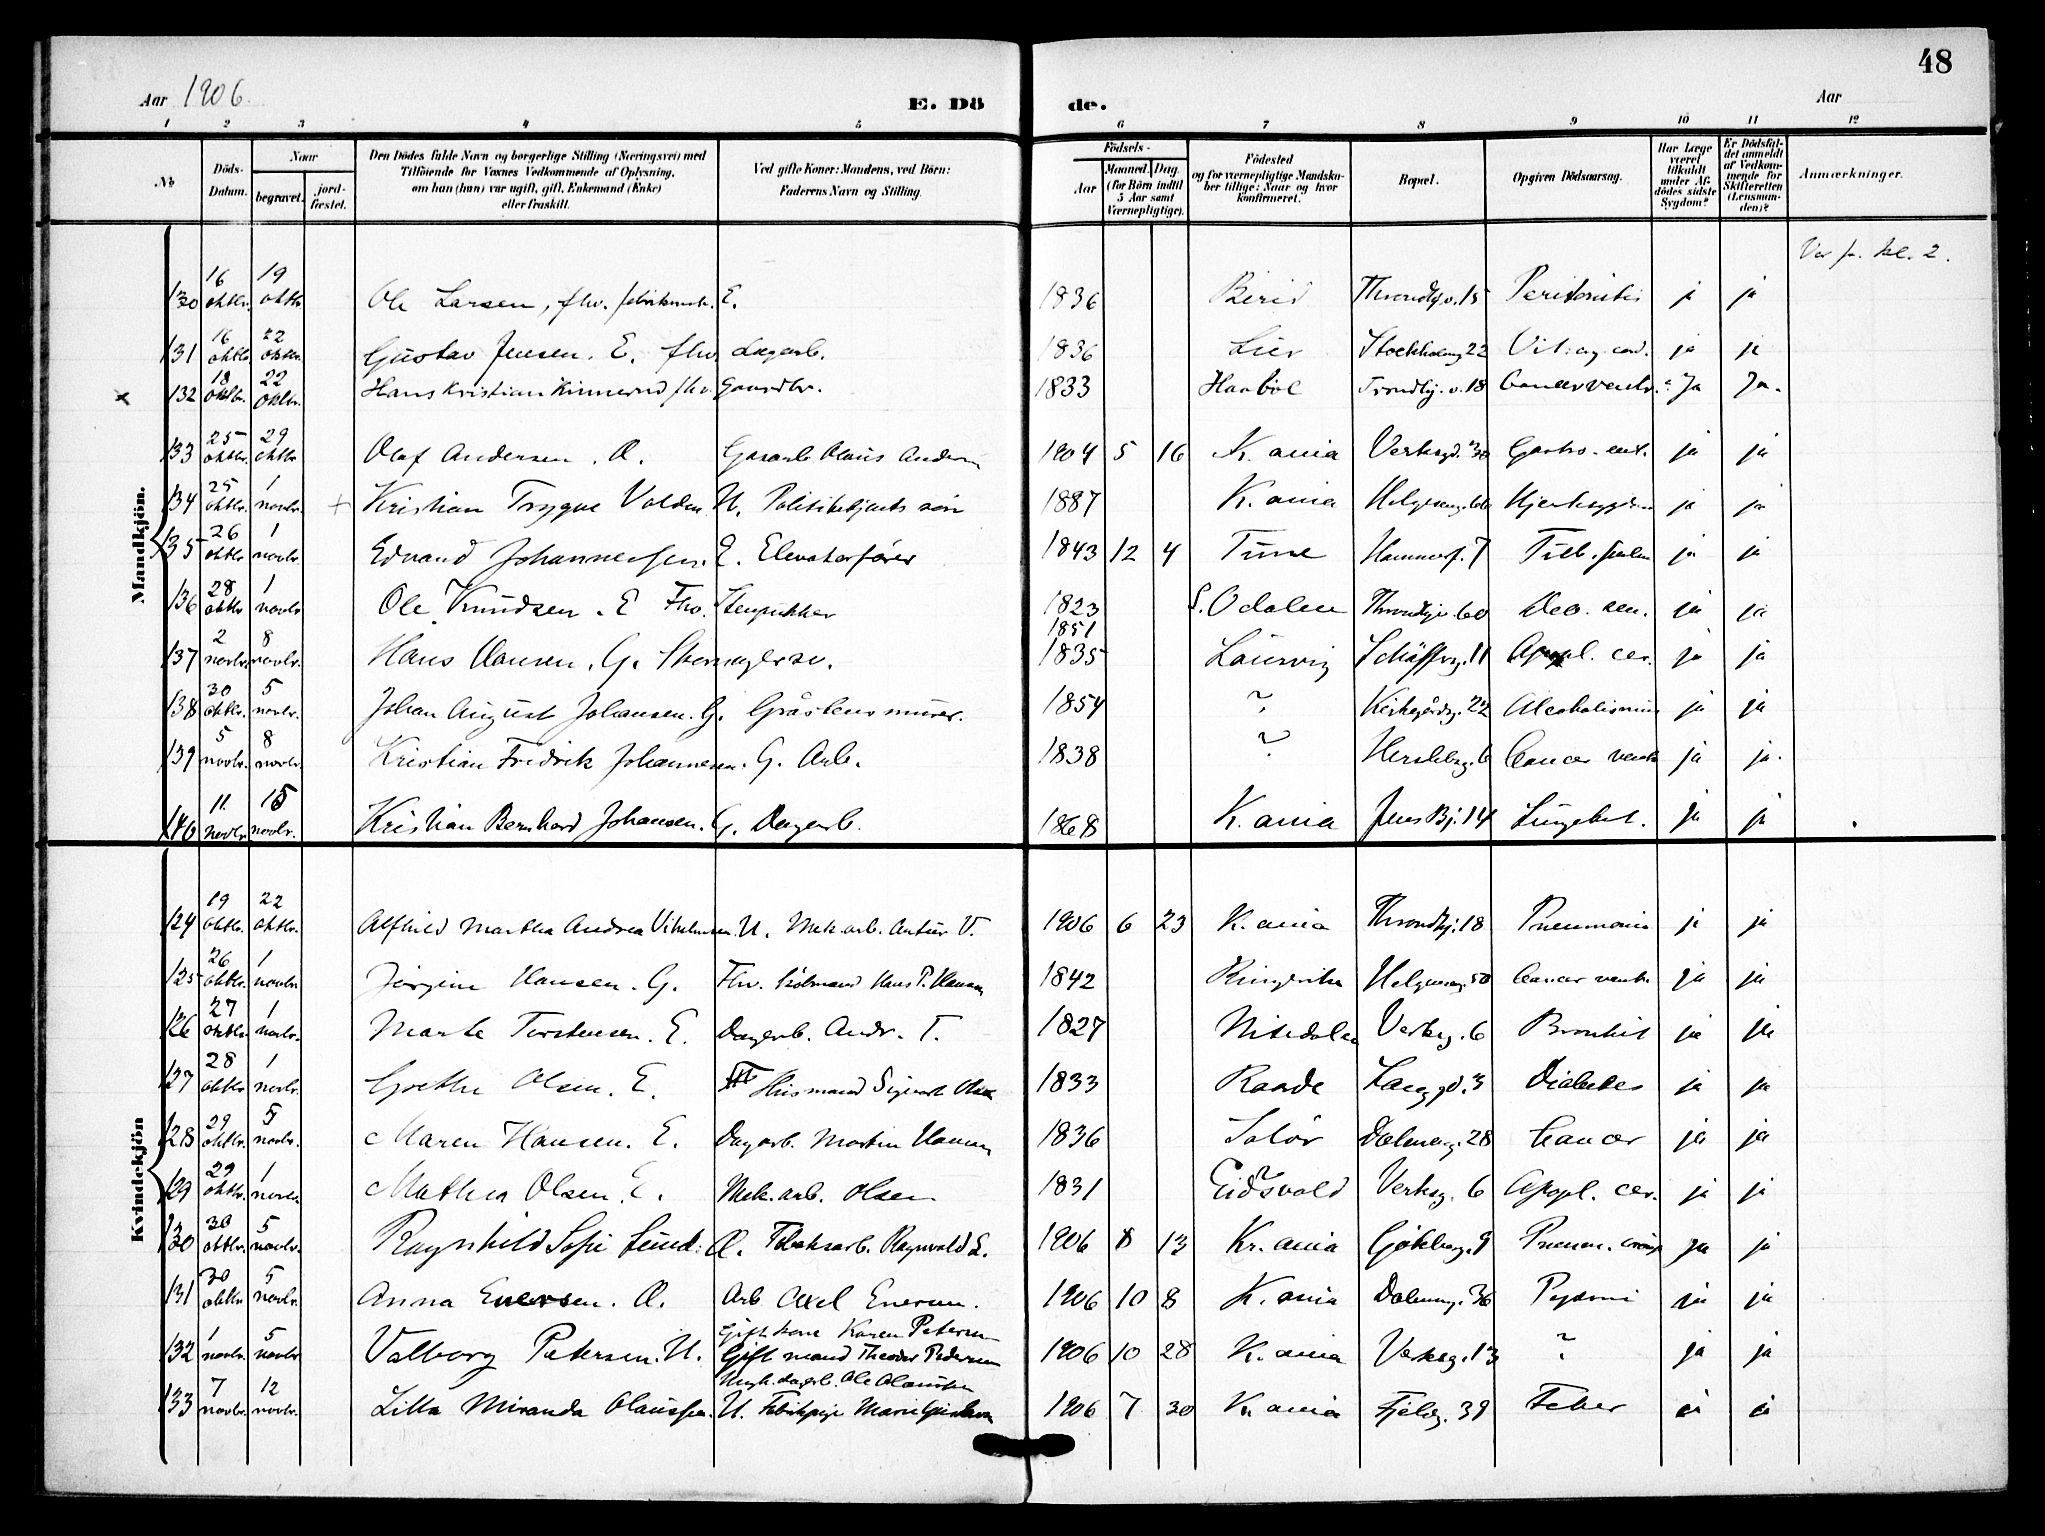 48
Aar 1906
E. Dö
de.
Aar
1 2 3 4 5 6 7 8 9 10 11 12
No
Döds-Datum.
Naar
begravet.
jord-fæstet.
Den Dödes fulde Navn og borgerlige Stilling (Næringsvei) med
Tilföiende for Voxnes Vedkommende af Oplysning,
om han (hun) var ugift, gift, Enkemand (Enke)
eller fraskilt.
Ved gifte Koner: Mandens, ved Börn:
Faderens Navn og Stilling.
Födsels-
Aar
Maaned. Dag.
(for Börn indtil
5 Aar samt
Værnepligtige).
Födested
og for værnepligtige Mandska-
ber tillige: Naar og hvor
konfirmeret.
Bopæl.
Opgiven Dödsaarsag.
Har Læge
været
tilkaldt
under Af-
dödes sidste
Sygdom?
Er Dödsfal-
det anmeldt
af Vedkom-
mende for
Skifteretten
(Lensman-
den)?
Anmærkninger.
Mandkjön.
130 16 oktbr. 19 oktbr. Ole Larsen, fhv. fabrikmest. E. 1836 Birid Throndhj.v. 15 Peritonitis ja ja
131 16 oktbr. 22 oktbr. Gustav Jensen. E. fhv. Dagarb. 1836 Lier Stockholmg. 22 Vit. org. cord. ja ja
132 18 oktbr. 22 oktbr. Hans Kristian Kinnerud fhv. Gaardbr. 1833 Trondhj.v. 18 Cancer ventr. Ja Ja.
133 25 oktbr. 29 oktbr. Olaf Andersen. Gasarb. Olaus Andersen 1904 5 16 K.ania Verksgd. 30 Gastro-ent. ja ja
134 25 oktbr. 1 novbr. + Kristian Trygve Volden U. Politibetjents sön 1887 K.ania Helgesensg. 66 Hjertesygdom ja ja
135 26 oktbr. 1 novbr. Edvard Johannessen. E. Elevatorförer 1843 12 4 Tune Hammerf. 7 Tub. pulm ja ja
136 28 oktbr. 1 novbr. Ole Knudsen. E Fhv. Stenpukker 1823 S. Odalen Throndhjv. 60 Deb. sen. ja ja
137 2 novbr. 8 novbr. Hans Hansen. G. Skomagersv. 1851 1835 Laurvig Schäffersg. 11 Apopl. cer. ja ja
138 30 oktbr. 5 novbr. Johan August Johansen. G. Gråstensmurer. 1854 ? Kirkegårdsg. 22 Alcoholismus ja ja
139 5 novbr. 8 novbr. Kristian Fredrik Johannesen. G. Arb. 1838 ? Herslebsg. 6 Cancer ventr. ja ja.
140 11. novbr. 15 novbr. Kristian Bernhard Johansen. G. Dagarb. 1868 K.ania Jens Bj. 14 Lungebet. ja ja
Kvindekjön
124 19 oktbr. 22 oktbr. Alfhild Martha Andrea Vilhelmsen. U. Mek. arb. Antur V. 1906 6 23 K.ania Throndhj. 18 Pneumonia ja ja
125 26 oktbr. 1 novbr. Jörgine Hansen. G. Fhv. Hans P. Hansen 1842 Ringerike Helgesensg. 50 Cancer ventr. ja ja
126 27 oktbr. 1 novbr. Marte Torstensen. E. Dagarb. Andr. T. 1827 Nitedalen Verksg. 6 Bronkit ja ja
127 28 oktbr. 1 novbr. Grethe Olsen. E. Husmand Sigvart Olsen 1833 Raade Langgd. 3 Diabetes ja ja
128 29 oktbr. 5 novbr. Maren Hansen. E. Dagarb. Martin Hansen 1836 Solör Dæleneng. 28 Cancer ja ja
129 29 oktbr. 1 novbr. Mathea Olsen. E. Mek. arb. Olsen 1831 Eidsvold Verksg. 6 Apopl. cer. ja ja
130 30 oktbr. 5 novbr. Ragnhild Sofie Lund. Tobaksarb. Ragnvald L. 1906 8 13 Kr.ania Göteborg. 9 Pneum. croup ja ja
131 30 oktbr. 5 novbr. Anna Enersen. Arb Axel Enersen. 1906 10 8 K.ania Dælneng. 36 Pyæmi ja ja
132 1 novbr. 5 novbr. Valborg Petersen. U. Gift kone Karen Petersen Gift mand Theodor Pedersen 1906 10 28 K.ania Verksg. 13 ? ja ja
133 7 novbr. 12 novbr. Lilla Miranda Olaussen. U. Ungk. dagarb. Ole Olaussen Fabrikpige Marie 1906 7 30 K.ania Fjeldg. 39 Feber ja ja